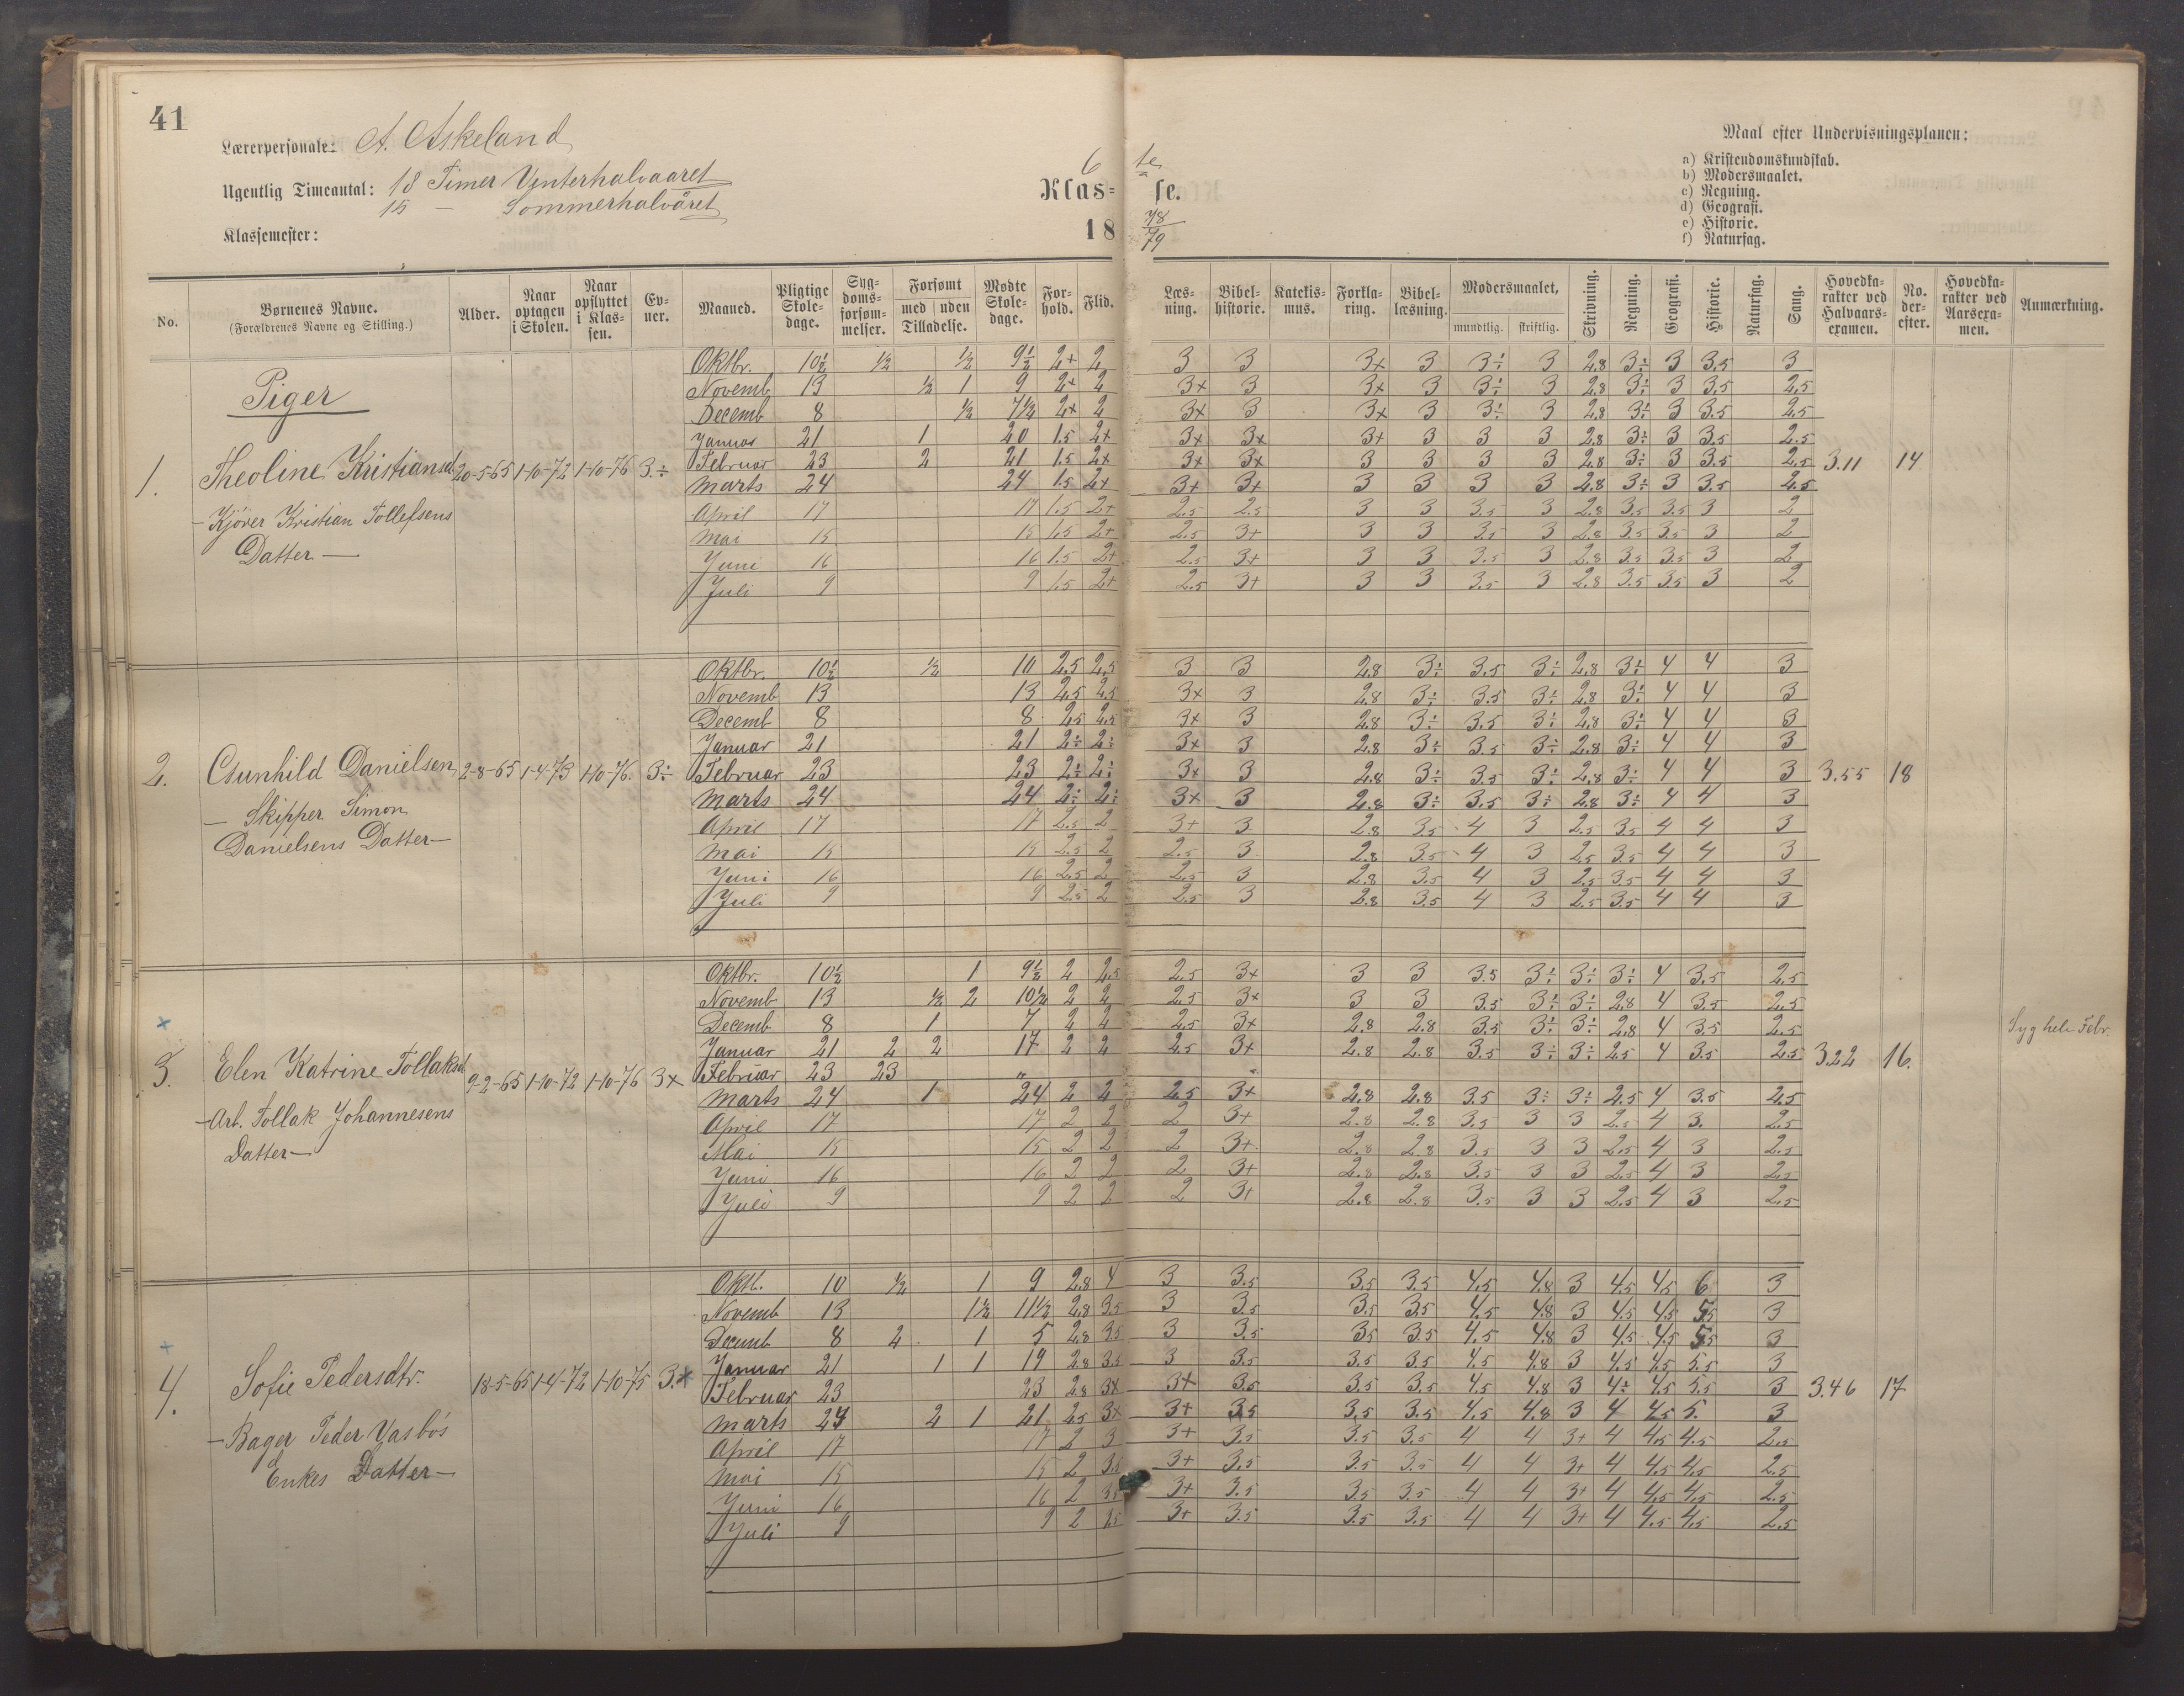 41
Lærerpersonale: A. Askeland
Ugentlig Timeantal: 18 Timer Vinterhalvaaret
15 — Sommerhalvåret
Klassemester:
6te
Klasse.
1878/79
Maal efter Undervisningsplanen:
a) Kristendomskundskab.
b) Modersmaalet.
c) Regning.
d) Geografi.
e) Historie.
f) Naturfag.
No. | Børnenes Navne. (Forældrenes Navne og Stilling.) | Alder. | Naar optagen i Skolen. | Naar opflyttet i Klassen. | Evner. | Maaned. | Pligtige Skoledage. | Sygdomsforsømmelser. | Forsømt med Tilladelse. | Forsømt uden Tilladelse. | Mødte Skoledage. | Forhold. | Flid. | Læsning. | Bibelhistorie. | Katekismus. | Forklaring. | Bibellæsning. | Modersmaalet, mundtlig. | skriftlig. | Skrivning. | Regning. | Geografi. | Historie. | Naturfag. | Sang. | Hovedkarakter ved Halvaarsexamen. | No. derefter. | Hovedkarakter ved Aarsexamen. | Anmærkning.
Piger
1. Theoline Kristiansd. 20-5-65 1-10-72 1-10-76 3.÷ 3.11 14
— Kjører Kristian Tollefsens
Datter —
Oktbr. 10½ ½ ½ 9½ 2+ 2 3 3 3x 3 3÷ 3 2.8 3÷ 3 3.5 3
Novemb 13 ½ 1 9 2+ 2 3x 3 3x 3 3÷ 3 2.8 3÷ 3 3.5 2.5
Decemb 8 ½ 7½ 2x 2 3x 3 3x 3 3÷ 3 2.8 3÷ 3 3.5 2.5
Januar 21 1 20 1.5 2x 3x 3x 3+ 3 3 3 2.8 3÷ 3 3.5 2.5
Februar 23 2 21 1.5 2x 3x 3x 3 3 3 3 2.8 3÷ 3 3.5 2.5
Marts 24 24 1.5 2x 3+ 3x 3 3 3 3 2.8 3÷ 3 3.5 2.5
April 17 17 1.5 2+ 2.5 2.5 3 3 3.5 3 2.8 3.5 3.5 3 2
Mai 15 15 1.5 2+ 2.5 3+ 3 3 3.5 3 2.8 3.5 3.5 3 2
Juni 16 16 1.5 2+ 2.5 3+ 3 3 3.5 3 2.8 3.5 3.5 3 2
Juli 9 9 1.5 2+ 2.5 3+ 3 3 3.5 3 2.8 3.5 3.5 3 2
2. Gunhild Danielsen 2-8-65 1-4-73 1-10-76. 3÷ 3.55 18
— Skipper Simon
Danielsens Datter —
Oktbr. 10½ ½ 10 2.5 2.5 3 3 2.8 3÷ 3.5 3÷ 2.8 3÷ 4 4 3
Novemb 13 13 2.5 2.5 3x 3 2.8 3÷ 3.5 3÷ 2.8 3÷ 4 4 3
Decemb 8 8 2.5 2.5 3x 3 2.8 3÷ 3.5 3÷ 2.8 3÷ 4 4 3
Januar 21 21 2÷ 2÷ 3x 3 2.8 3÷ 3.5 3÷ 2.8 3÷ 4 4 3
Februar 23 23 2÷ 2÷ 3x 3 2.8 3÷ 3.5 3÷ 2.8 3÷ 4 4 3
Marts 24 24 2÷ 2÷ 3x 3 2.8 3÷ 3.5 3÷ 2.8 3÷ 4 4 3
April 17 17 2.5 2 3+ 3 2.8 3.5 4 3 2.5 3.5 4 4 3
Mai 15 15 2.5 2 2.5 3 2.8 3.5 4 3 2.5 3.5 4 4 3
Juni 16 16 2.5 2 2.5 3 2.8 3.5 4 3 2.5 3.5 4 4 3
Juli 9 9 2.5 2 2.5 3 2.8 3.5 4 3 2.5 3.5 4 4 3
3. Elen Katrine Tollaksd. 9-2-65 1-10-72 1-10-76 3x 3.22 16.
— Arb. Tollak Johannesens
Datter —
Oktbr. 10½ 1 9½ 2 2.5 2.5 3x 3 3 3.5 3÷ 3÷ 3÷ 4 3.5 2.5
Novemb 13 ½ 2 10½ 2 2 2.5 3x 3 3 3.5 3÷ 3÷ 2.8 4 3.5 2.5
Decemb 8 1 7 2 2 2.5 3x 2.8 2.8 3.5 3÷ 3÷ 2.8 4 3.5 2.5
Januar 21 2 2 17 2 2 2.5 3x 2.8 2.8 3.5 3÷ 3÷ 2.5 4 3.5 2.5
Februar 23 23 " Syg hele Febr.
Marts 24 1 24 2 2 2.5 3x 2.8 2.8 3.5 3÷ 3÷ 2.5 4 3.5 2.5
April 17 17 2 2 2 3+ 2.8 2.8 3.5 3 3 2.5 4 3. 2.5
Mai 15 15 2 2 2 3+ 2.8 2.8 3.5 3 3 2.5 4 3 2.5
Juni 16 16 2 2 2 3+ 2.8 2.8 3.5 3 3 2.5 4 3 2.5
Juli 9 9 2 2 2 3+ 2.8 2.8 3.5 3 3 2.5 4 3 2.5
4. Sofie Pedersdtr. 18-5-65 1-4-72 1-10-75 3.x 3.46 17
— Bager Peder Vasbös
Enkes Datter —
Oktb. 10 ½ 1 9 2.8 4 3 3.5 3.5 3.5 4.5 4.8 3 4.5 4.5 6 3
Novemb 13 1½ 11½ 2.8 3.5 3 3.5 3.5 3.5 4.5 4.8 3 4.5 4.5 5.5 3
Decemb 8 2 1 5 2.8 3.5 3 3.5 3.5 3.5 4.5 4.8 3 4.5 4.5 5.5 3
Januar 21 1 1 19 2.8 3.5 3 3.5 3.5 3.5 4.5 4.8 3 4.5 4.5 5.5 3
Februar 23 23 2.8 3x 3x 3.5 3.5 3.5 4.5 4.8 3 4÷ 4.5 5.5 3
Marts 24 2 1 21 2.5 3x 3+ 3.5 3.5 3.5 4.5 4.8 3 4 4.5 5. 3
April 17 17 2 3 3+ 3.5 3.5 3.5 4 4 3+ 4 4.5 4.5 2.5
Mai 15 15 2 3.5 3+ 3.5 3.5 3.5 4 4 3+ 4 4.5 4.5 2.5
Juni 16 16 2 3+ 3.5 3.5 3.5 4 4 3+ 4 4.5 4.5 2.5
Juli 9 9 2 3+ 3.5 3.5 3.5 4 4 3+ 4 4.5 4.5 2.5